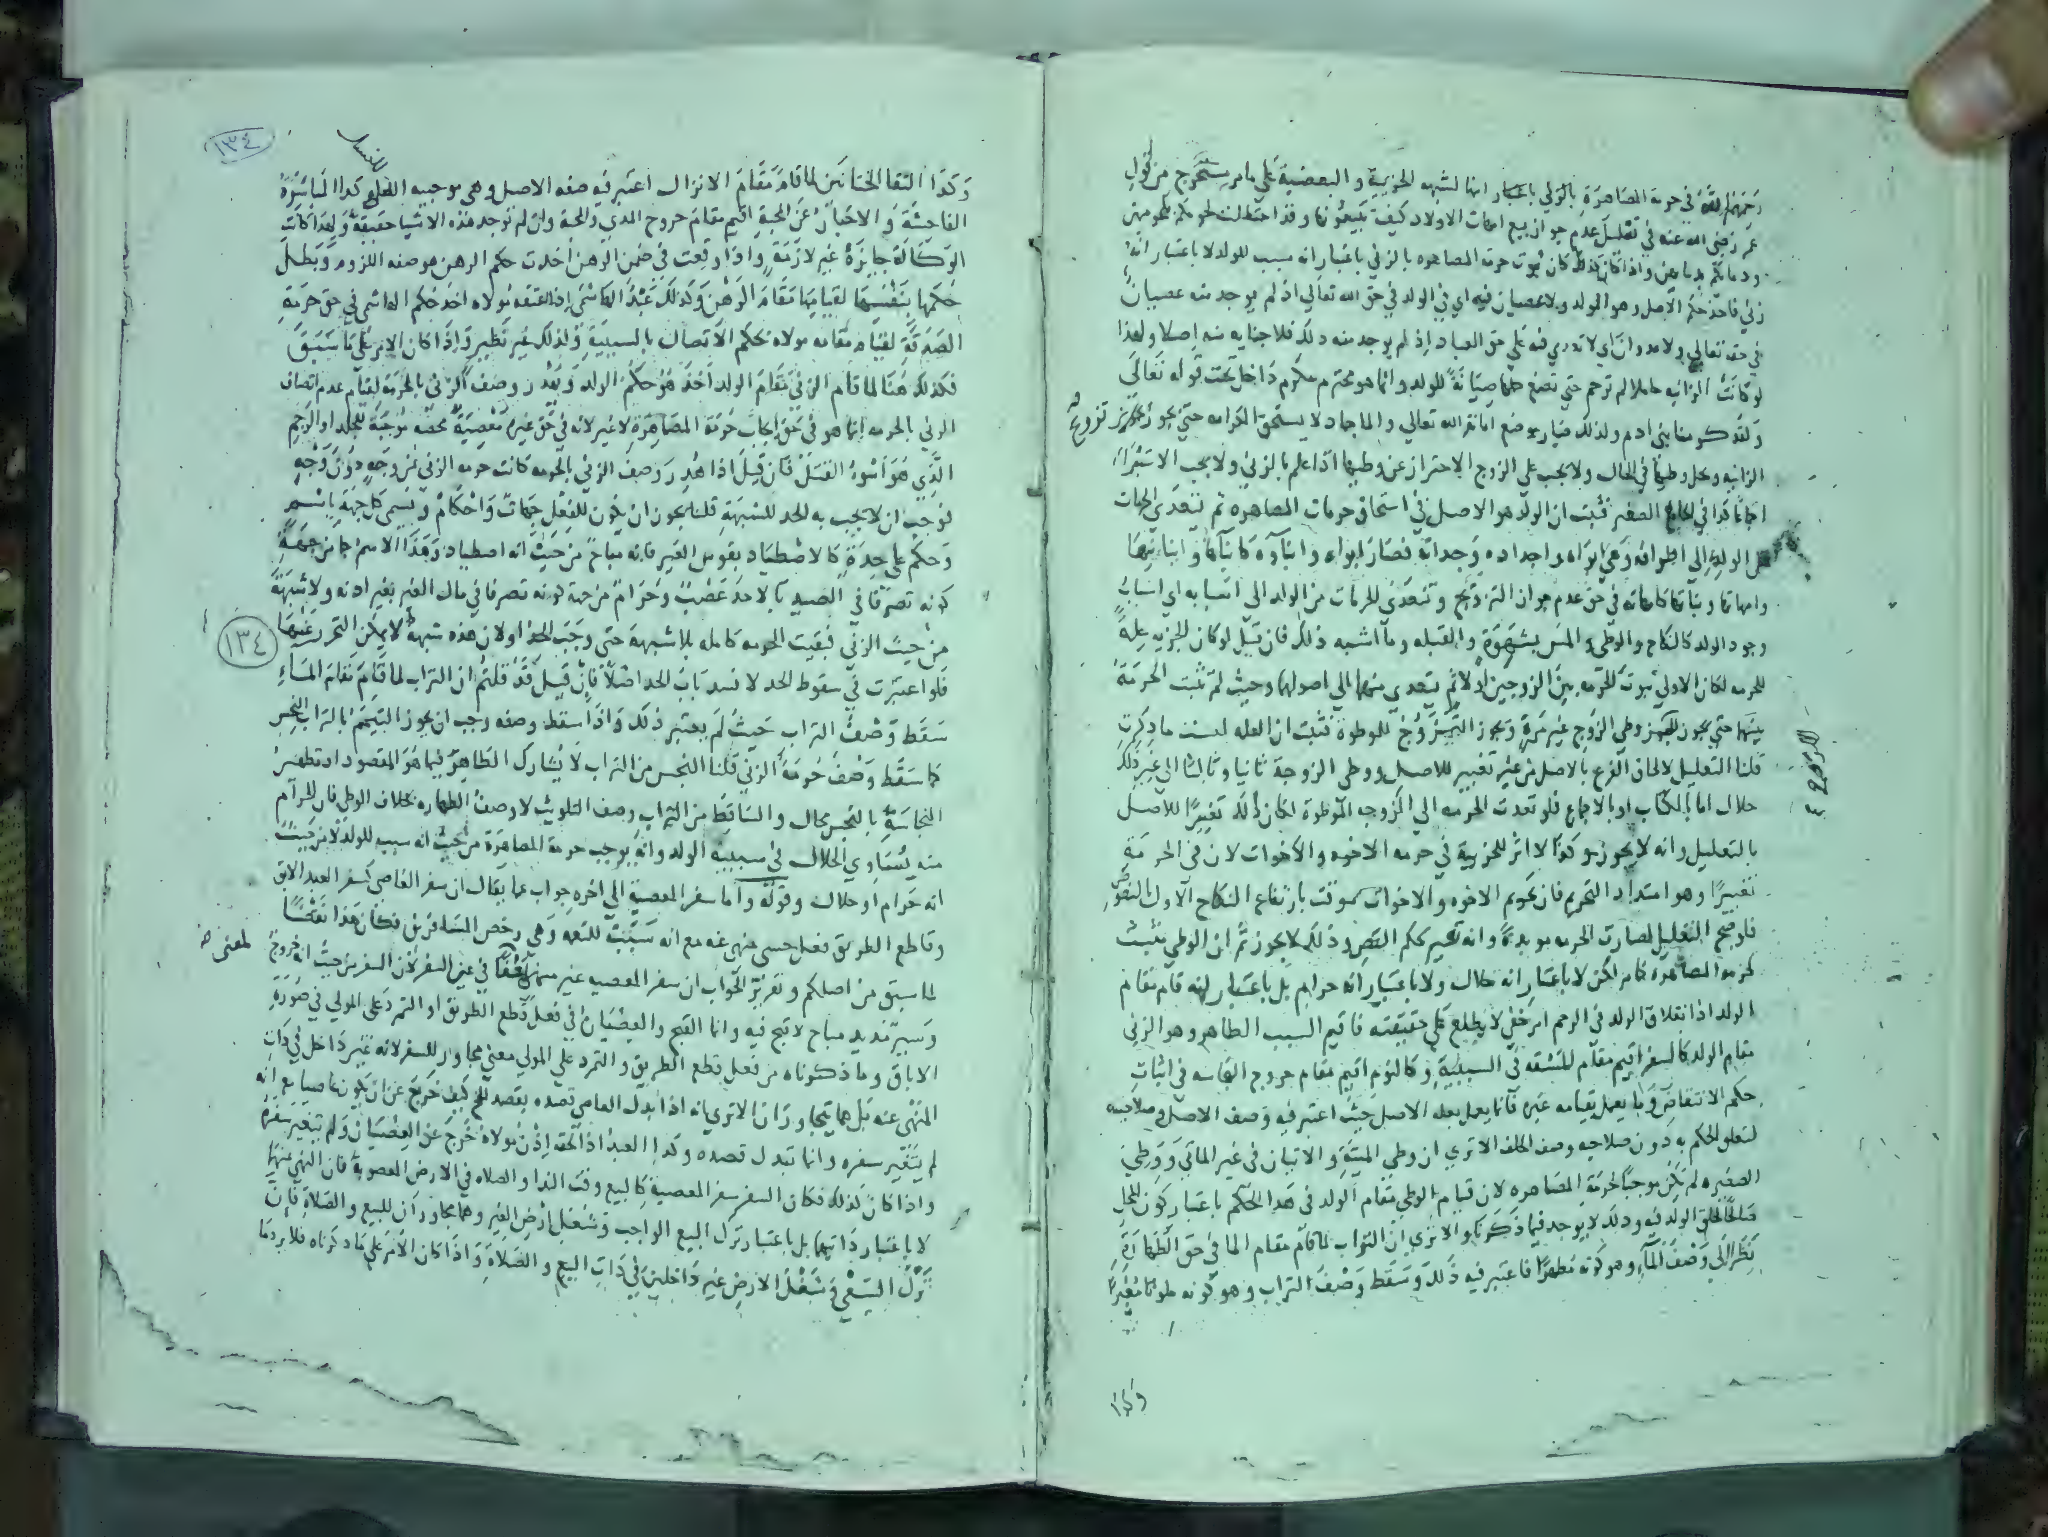 رحمهم الله في حرمة المصاهرة بالزني باعتبار انها لشبهه الجزيية والبعضية علي ما مر مستخرج من قول
عمر رضي الله عنه في تعليل عدم جواز بيع امهات الاولاد كيف تبيعونها وقد اختلطت لحومكم بلحومهن
ودماءكم بدمائهن واذا كان كذلك كان ثبوت حرمة المصاهره بالزني باعتبار انه سبب للولد لا باعتبار انه
زني فاخذ حكم الاصل وهو الولد ولا عصيان فيه اي في الولد في حق الله تعالي اذ لم يوجد منه عصيان
في حقه تعالي ولا عدوان اي لا تعدي فيه علي حق العباد اذ لم يوجد منه ذلك فلا جنايه منه اصلا ولهذا
لو كانت الزانيه حاملا لم ترجم حتي تضع حملها صيانة للولد وانما هو محترم مكرم داخل تحت قوله تعالي
ولقد كرمنا بني ادم ولذلك
الزانيه وحل وطيها في الحال ولا يجب علي الزوج الاحتراز عن وطيها اذا علم بالزني ولا يجب الاستبراء
فثبت ان الولد هو الاصل في استحقاق حرمات المصاهره ثم تتعدي الحرمات
من الولد الي اطرافه وهي ابواه واجداده وجداته فصار ابواه وابناؤه كابائها وابنائها
وامهاتها وبناتها كامهاته في حق عدم جواز التزويج وتتعدي الحرمات من الولد الي اسبابه اي اسباب
وجود الولد كالنكاح والوطي والمس بشهوة والقبله وما اشبه ذلك فان قيل لو كان الجزيه علة
للحرمه لكان الاولي ثبوت الحرمه بين الزوجين اولا ثم يتعدي منهما الي اصولهما وحيث لم تثبت الحرمة
بينهما حتي يجوز وطي الزوج غير مرة ويجوز التزوج للموطوة فثبت ان العله ليست ما ذكرت
قلنا التعليل لالحاق الفرع بالاصل من غير تغيير للاصل ووطي الزوجة ثانيا وثالثا الي غير ذلك
حلال اما بالكتاب او بالاجماع فلو تعدت الحرمه الي الزوجه الموطوة لكان ذلك تغييرا للاصل
بالتعليل وانه لا يجوز وكذا لا اثر للجزيية في حرمه الاخوه والاخوات لان في الحرمة
تغييرا وهو امتداد التحريم فان تحريم الاخوه والاخوات موقت بارتفاع النكاح الاول بالنصوص
فلو صح التعليل لصارت الحرمه مؤبدة وانه تغيير لحكم النص وذلك لا يجوز ثم ان الوطي يثبت
حرمه المصاهرة كما مر لكن لا باعتبار انه حلال ولا باعتبار انه حرام بل باعتبار انه قام مقام
الولد اذ انفلاق الولد في الرحم امر خفي لا يطلع علي حقيقته فاقيم السبب الظاهر وهو الزني
مقام الولد كالسفر اقيم مقام المشقه في السببية وكالنوم اقيم مقام خروج النجاسه في اثبات
حكم الانتقاض وما يعمل بقيامه مقام غيره فانما يعمل بعلة الاصل حيث اعتبر فيه وصف الاصل وصلاحيته
لتعلق الحكم به دون صلاحيه وصف الخلف الا تري ان وطي الميتة والاتيان في غير الماتي ووطي
الصغيره لم يكن موجبا لحرمة المصاهره لان قيام الوطي مقام الولد في هذا الحكم باعتبار كون المحل
صالحا لخلق الولد فيه وذلك لا يوجد فيما ذكرنا والا تري ان التراب لما قام مقام الما في حق الطهارة
نظر الي وصف الماء وهو كونه مطهرا فاعتبر فيه ذلك وسقط وصف التراب وهو كونه ملوثا مغبرا
وكذا
١٣٤
وكذا التقا الختانين لما قام مقام الانزال اعتبر فيه صفه الاصل وهي موجبيه الغسل كذا المباشرة
الفاحشة والاخبار عن المحبة اقيم مقام خروج المذي والمحبة وان لم توجد هذه الاشيا حقيقة ولهذا كانت
الوكالة جايزة غير لازمة واذا وقعت في ضمن الرهن اخذت حكم الرهن هو صفه اللزوم وبطل
حكمها بنفسها لقيامها مقام الرهن وكذلك عبد الهاشمي اذا اعتقه مولاه اخذ حكم الهاشمي في حق حرمة
الصدقة لقيامه مقام مولاه بحكم الاتصال بالسببية ولذلك غير نظير واذا كان الامر علي ما سبق
فكذلك هنا لما قام الزني مقام الولد اخذ هو حكم الولد ويهدر وصف الزني بالحرمة لقيام عدم اتصاف
الزني بالحرمه انما هو في حق ايجاب حرمة المصاهرة لا غير لانه في حق غيره معصية محضه موجبة للجلد او الرجم
الذي هو اسوء القتل فان قيل اذا هدر وصف الزني بالحرمه كانت حرمه الزني من وجه دون وجه
فوجب ان لا يجب به الحد للشبهة قلنا يجوز ان يكون للفعل جهات واحكام ويسمي كل جهة باسم
وحكم علي حدة كالاصطياد بقوس الغير فانه مباح من حيث انه اصطياد وهذا الاسم جا من جهة
كونه تصرفا في الصيد بالاخذ غصب وحرام من جهة كونه تصرفا في مال الغير بغير اذنه ولا شبهة
من حيث الزني فبقيت الحرمه كامله بلا شبهة حتي وجب الحد او لان هذه شبهة لا يمكن التحرز عنها
١٣٤
فلو اعتبرت في سقوط الحد لانسد باب الحد اصلا فان قيل قد قلتم ان التراب لما قام مقام الماء
سقط وصف التراب حيث لم يعتبر ذلك واذا سقط وصفه وجب ان يجوز التيمم بالتراب النجس
كما سقط وصف حرمة الزني قلنا النجس من التراب لا يشارك الطاهر فيما هو المقصود اذ تطهير
النجاسة بالنجس محال والساقط من التراب وصف التلويث لا وصف الطهاره بخلاف الوطي فان الحرام
منه يساوي الحلال في سببية الولد وانه يوجب حرمة المصاهرة من حيث انه سبب للولد لا من حيث
انه حرام او حلال وقوله واما سفر المعصية الي اخره جواب عما يقال ان سفر العاصي كسفر العبد الابق
وقاطع الطريق فعل حسي منهي عنه مع انه سبب للنعمه وهي رخص المسافر فكان هذا نقضا
لما سبق من اصلكم وتقرير الجواب ان سفر المعصيه غير منهي لمعني في عين السفر لان السفر من حيث انه خروج
وسير مديد مباح لا قبح فيه وانما القبح والعصيان في فعل قطع الطريق او التمرد علي المولي في صورة
الاباق وما ذكرناه من فعل قطع الطريق والتمرد علي المولي معني مجاور للسفر لانه غير داخل في ذات
المنهي عنه بل هما يتجاوران الا تري انه اذا ابدل العاصي قصده بقصد الحج كيف خرج عن ان يكون عاصيا مع انه
لم يتغير سفره وانما تبدل قصده وكذا العبد اذا لحقه اذن مولاه خرج عن العصيان ولم يتغير سفره
واذا كان كذلك فكان السفر سفر المعصية كالبيع وقت الندا والصلاه في الارض المغصوبة فان النهي عنهما
لا باعتبار ذاتهما بل باعتبار ترك السعي الواجب وشغل ارض الغير وهما مجاوران للبيع والصلاة فان
ترك السعي وشغل الارض غير داخلين في ذات البيع والصلاة واذا كان الامر علي ما ذكرناه فلا يرد ما